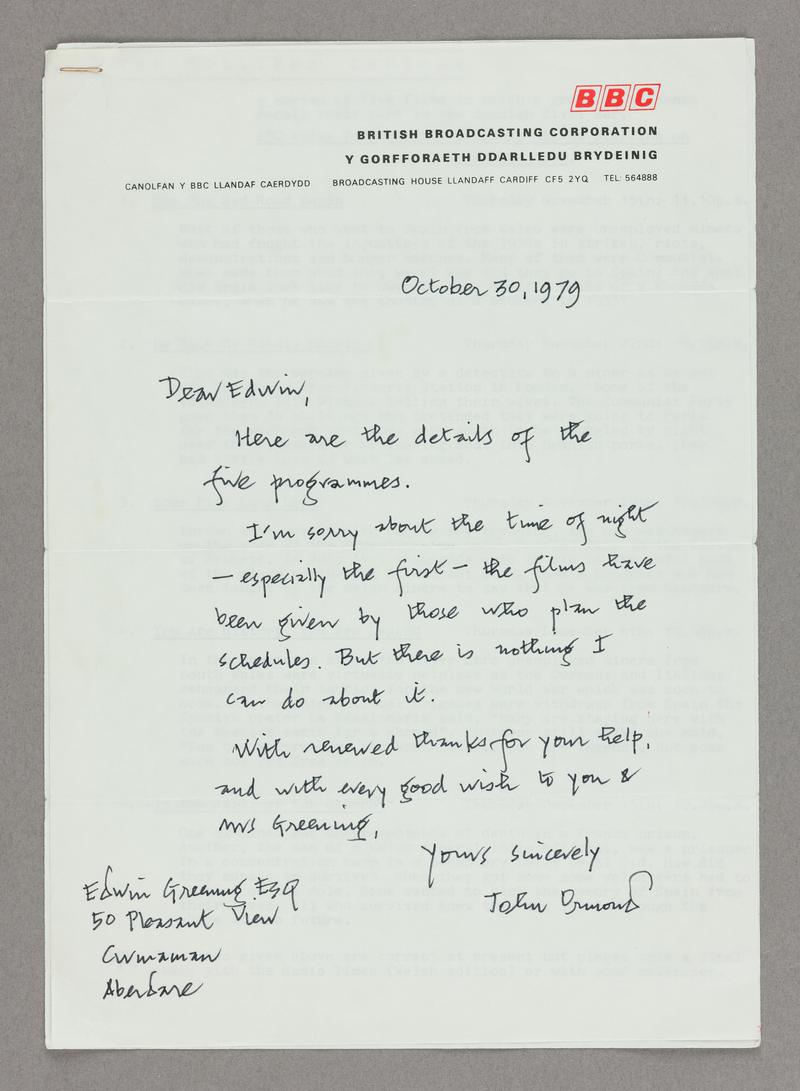 BBC
BRITISH BROADCASTING CORPORATION
Y GORFFORAETH DDARLLEDU BRYDEINIG
CANOLFAN Y BBC LLANDAF CAERDYDD BROADCASTING HOUSE LLANDAFF CARDIFF CF5 2YQ TEL: 564888
October 30, 1979
Dear Edwin,
Here are the details of the
five programmes.
I'm sorry about the time of night
– especially the first – the films have
been given by those who plan the
schedules. But there is nothing I
can do about it.
With renewed thanks for your help,
and with every good wish to you &
Mrs Greening,
Yours sincerely
John Ormond
Edwin Greening Esq
50 Pleasant View
Cwmaman
Aberdare